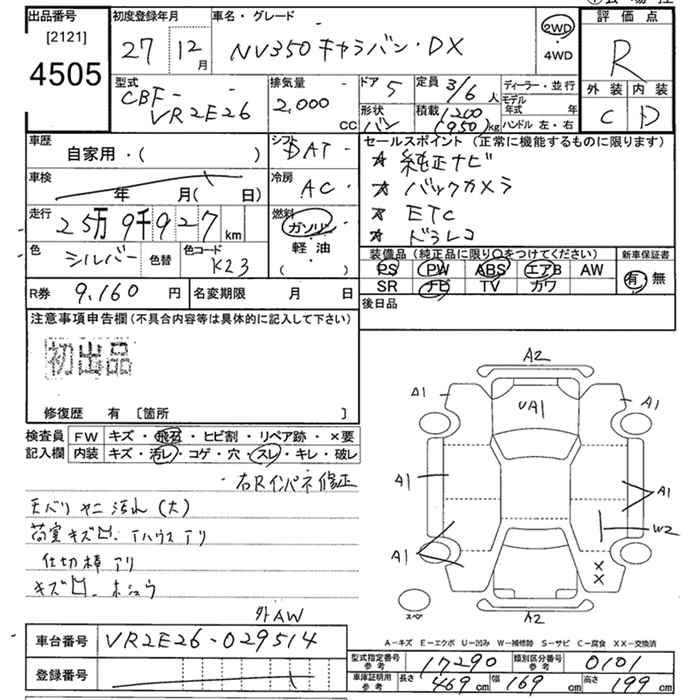 出品番号
[2121]
4505
初度登録年月
27 12月
車名・グレード
NV350 キャラバン・DX
2WD
・
4WD
評価点
R
外装 内装
C D
型式
CBF-
VR2E26
排気量
2,000 cc
ドア 5
定員 3/6 人
形状 バン
積載 1200
(950) kg
ディーラー・並行
モデル年式 年
ハンドル 左・右
車歴
自家用・( )
シフト
DAT
車検
年 月( 日)
冷房
AC
走行
25万9千927 km
燃料
ガソリン
軽・油
( )
色
シルバー
色替
色コード
K23
セールスポイント (正常に機能するものに限ります)
★ 純正ナビ
★ バックカメラ
★ ETC
★ ドラレコ
装備品 (純正品に限り○をつけてください)
PS PW ABS エアB AW
SR ナビ TV カワ
新車保証書
有 無
後日品
R券 9,160 円
名変期限 月 日
注意事項申告欄 (不具合内容等は具体的に記入して下さい)
初出品
修復歴 有 〔箇所 〕
検査員
記入欄
FW キズ・飛石・ヒビ割・リペア跡・×要
内装 キズ・汚レ・コゲ・穴・スレ・キレ・破レ
右Rインパネ修正
天バリヤニ汚れ(大)
荷室キズ凹、Tハウスアリ
仕切棒アリ
キズ凹、ホシュウ
外AW
A2
A1
UA1
A1
A1
A1
A1
W2
××
スペア
A2
A-キズ E-エクボ U-凹み W-補修跡 S-サビ C-腐食 XX-交換済
車台番号 VR2E26-029514
登録番号
型式指定番号
参考
17290
類別区分番号
参考
0101
車庫証明用
参考
長さ 469 cm 幅 169 cm 高さ 199 cm